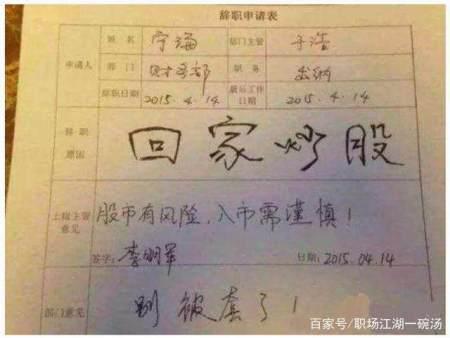 辞职申请表
申请人 姓名 宁海 部门主管 于浩
部门 财务部 职务 出纳
辞职日期 2015.4.14 最后工作日期 2015.4.14
辞职原因 回家炒股
上级主管意见 股市有风险，入市需谨慎！
签字：李明军 日期：2015.04.14
部门意见 别被套了！
百家号/职场江湖一碗汤